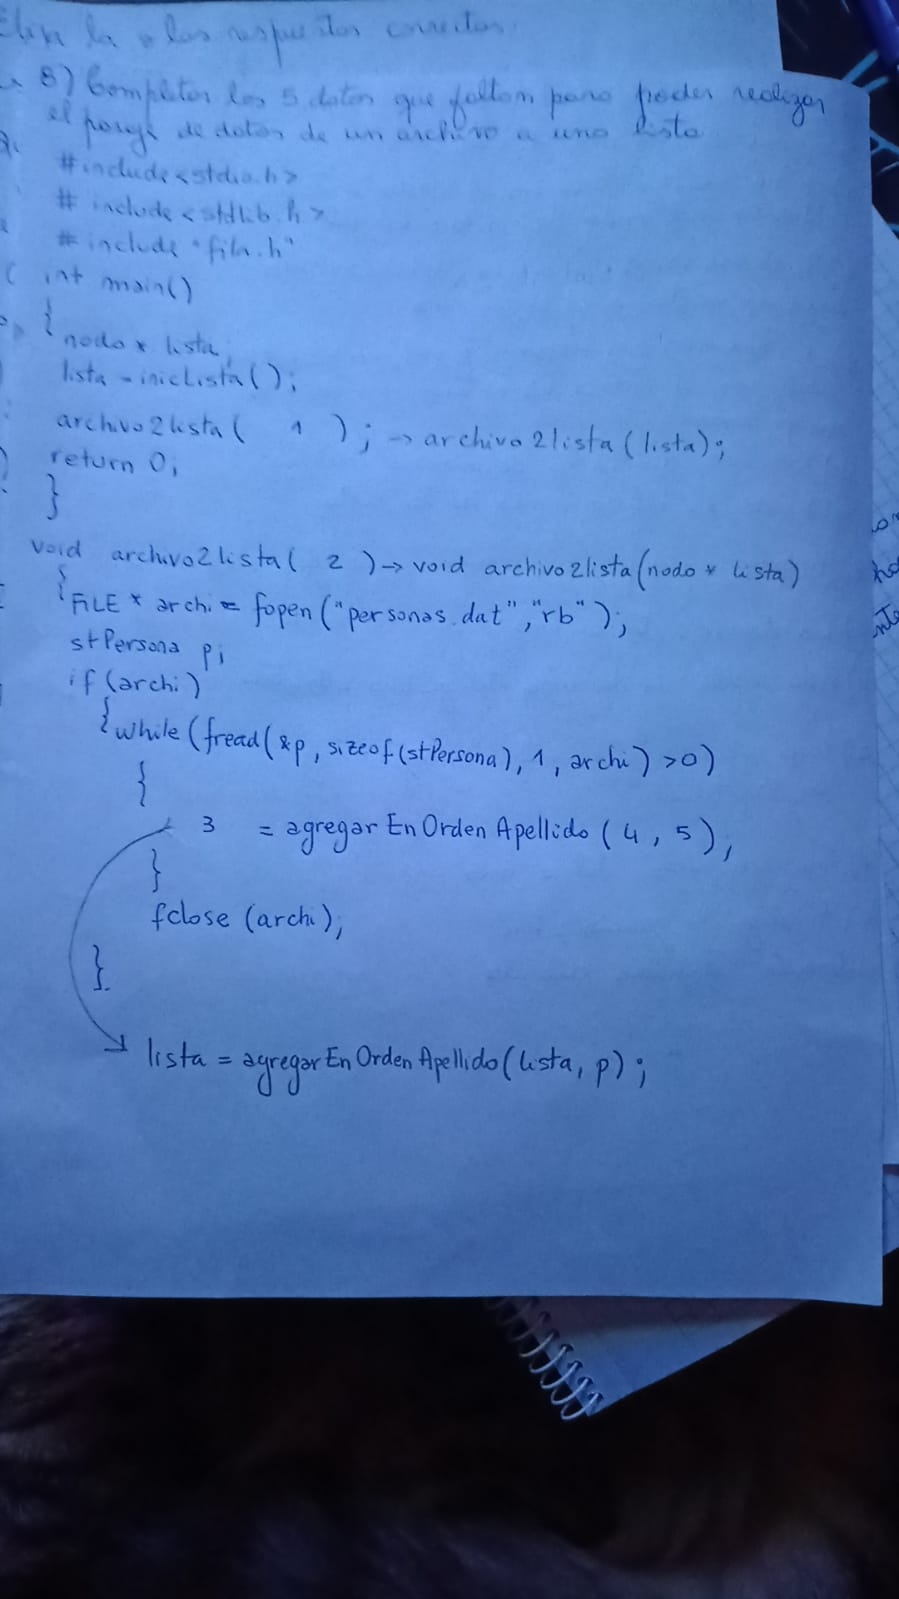 Elija la o las respuestas correctas.
8) Completar los 5 datos que faltan para poder realizar
el pasaje de datos de un archivo a una lista
#include<stdio.h>
# include <stdlib.h>
# include "fila.h"
int main()
{
nodo * lista;
lista = inicLista();
archivo2lista( 1 ); → archivo2lista(lista);
return 0;
}
void archivo2lista( 2 ) → void archivo2lista(nodo * lista)
{
FILE * archi = fopen("personas.dat","rb");
stPersona p;
if (archi)
{ while (fread(&p, sizeof(stPersona), 1, archi) >0)
{
3 = agregarEnOrdenApellido (4, 5);
}
fclose (archi);
}
lista = agregarEnOrdenApellido(lista, p);